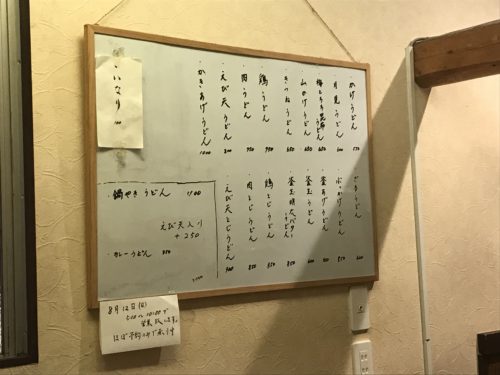 ・かけうどん
・月見うどん 600
・梅とろろ昆布うどん 650
・山かけうどん 650
・きつねうどん 650
・鶏うどん 750
・肉うどん 750
・えび天うどん 800
・かきあげうどん 1000
・いなり 100
・ざるうどん
・ぶっかけうどん
・釜あげうどん
・釜玉うどん 600
・釜玉明太バターうどん 850
・鶏とじうどん 850
・肉とじうどん 850
・えび天とじうどん 900
・鍋やきうどん 1100
えび天入り
+250
・カレーうどん
8月12日(日)
営業致します。